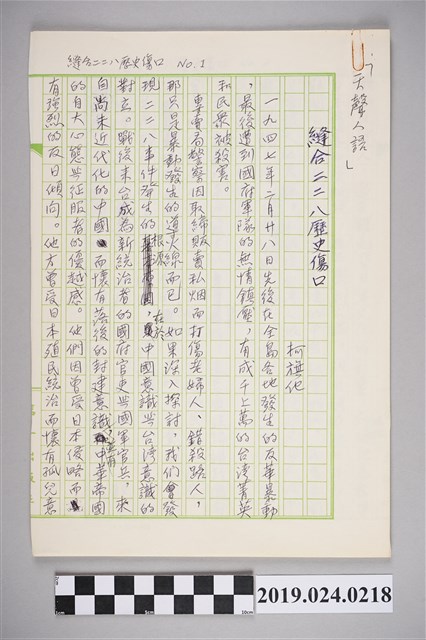 「天聲人語」
縫合二二八歷史傷口 NO. 1
縫合二二八歷史傷口
柯旗化
一九四七年二月廿八日先後在全島各地發生的反華暴動
，最後遭到國府軍隊的無情鎮壓，有成千上萬的台灣菁英
和民衆被殺害。
專賣局警察因取締販賣私烟而打傷老婦人、錯殺路人，
那只是暴動發生的導火線而已。如果深入探討，我們會發
現二二八事件發生的根源，在於中國意識與台灣意識的
對立。戰後來台成為新統治者的國府官吏與國軍官兵，來
自尚未近代化的中國而懷有落後的封建意識，還有中華帝國
的自大心態與征服者的優越感。他們因曾受日本侵略而
有強烈的反日傾向。他方曾受日本殖民統治而懷有孤兒意
2019.024.0218
1cm 5cm 10cm